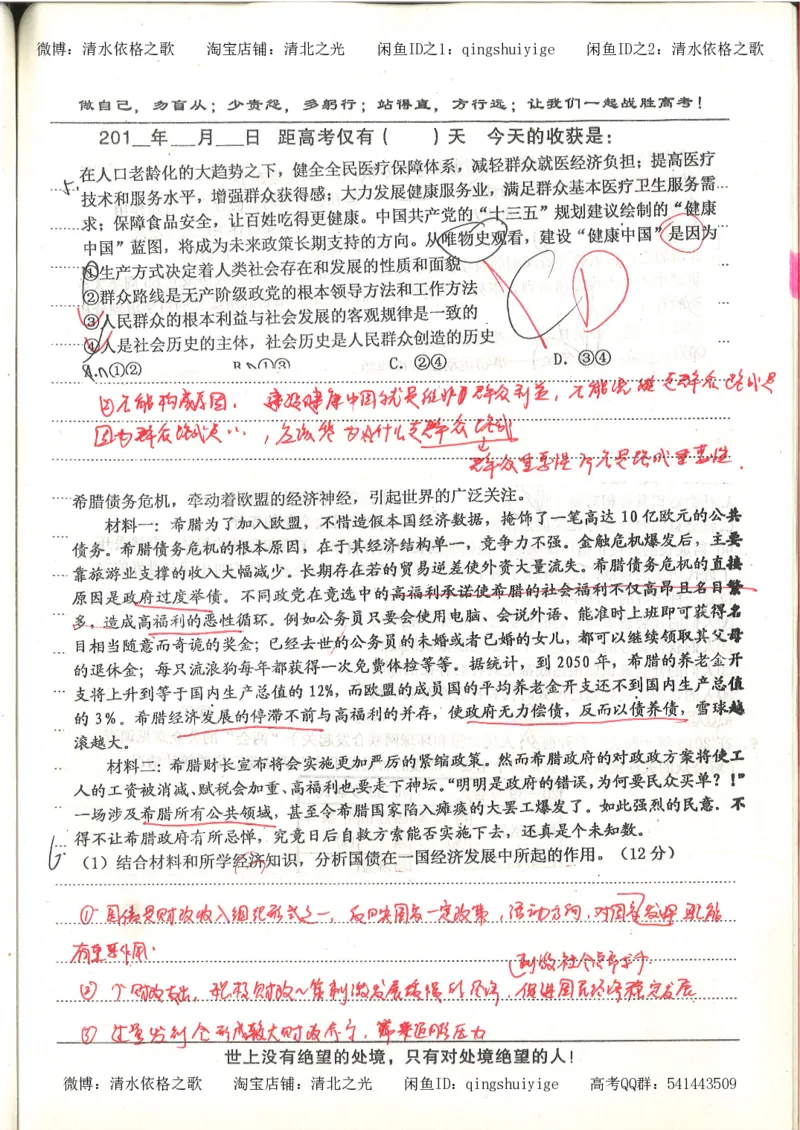 微博：清水依格之歌 淘宝店铺：清北之光 闲鱼ID之1：qingshuiyige 闲鱼ID之2：清水依格之歌
做自己，勿盲从；少责怨，多躬行；站得直，方行远；让我们一起战胜高考！
201__年___月___日 距高考仅有（ ）天 今天的收获是：
5. 在人口老龄化的大趋势之下，健全全民医疗保障体系，减轻群众就医经济负担；提高医疗
技术和服务水平，增强群众获得感；大力发展健康服务业，满足群众基本医疗卫生服务需
求；保障食品安全，让百姓吃得更健康。中国共产党的“十三五”规划建议绘制的“健康
中国”蓝图，将成为未来政策长期支持的方向。从唯物史观看，建设“健康中国”是因为
①生产方式决定着人类社会存在和发展的性质和面貌
②群众路线是无产阶级政党的根本领导方法和工作方法
③人民群众的根本利益与社会发展的客观规律是一致的
④人是社会历史的主体，社会历史是人民群众创造的历史
A.①② B.①③ C. ②④ D. ③④
②不能构成原因. 建设健康中国就是维护群众利益，不能说 走群众路线是
因为群众路线是 ，应该答为什么走群众路线
群众重要性 而不是路线重要性.
希腊债务危机，牵动着欧盟的经济神经，引起世界的广泛关注。
材料一：希腊为了加入欧盟，不惜造假本国经济数据，掩饰了一笔高达 10 亿欧元的公共
债务。希腊债务危机的根本原因，在于其经济结构单一，竞争力不强。金触危机爆发后，主要
靠旅游业支撑的收入大幅减少。长期存在若的贸易逆差使外资大量流失。希腊债务危机的直接
原因是政府过度举债。不同政党在竞选中的高福利承诺使希腊的社会福利不仅高昂且名目繁
多，造成高福利的恶性循环。例如公务员只要会使用电脑、会说外语、能准时上班即可获得名
目相当随意而奇诡的奖金；已经去世的公务员的未婚或者已婚的女儿，都可以继续领取其父母
的退休金；每只流浪狗每年都获得一次免费体检等等。据统计，到 2050 年，希腊的养老金开
支将上升到等于国内生产总值的 12%，而欧盟的成员国的平均养老金开支还不到国内生产总值
的 3%。希腊经济发展的停滞不前与高福利的并存，使政府无力偿债，反而以债养债，雪球越
滚越大。
材料二：希腊财长宣布将会实施更加严厉的紧缩政策。然而希腊政府的对政政方案将使工
人的工资被消减、赋税会加重、高福利也要走下神坛。“明明是政府的错误，为何要民众买单？！”
一场涉及希腊所有公共领域，甚至令希腊国家陷入瘫痪的大罢工爆发了。如此强烈的民意．不
得不让希腊政府有所忌惮，究竟日后自救方案能否实施下去，还真是个未知数。
6. （1）结合材料和所学经济知识，分析国债在一国经济发展中所起的作用。（12 分）
①国债是财政收入组织形式之一，反映国家一定政策，活动方向，对国家发挥职能
有重要作用.
刺激社会总需求
② 财政支出，积极财政 刺激发展缓慢的经济，促进国民经济稳定发展
③ 过量发行会形成较大财政赤字，带来通膨压力
世上没有绝望的处境，只有对处境绝望的人！
微博：清水依格之歌 淘宝店铺：清北之光 闲鱼ID：qingshuiyige 高考QQ群：541443509